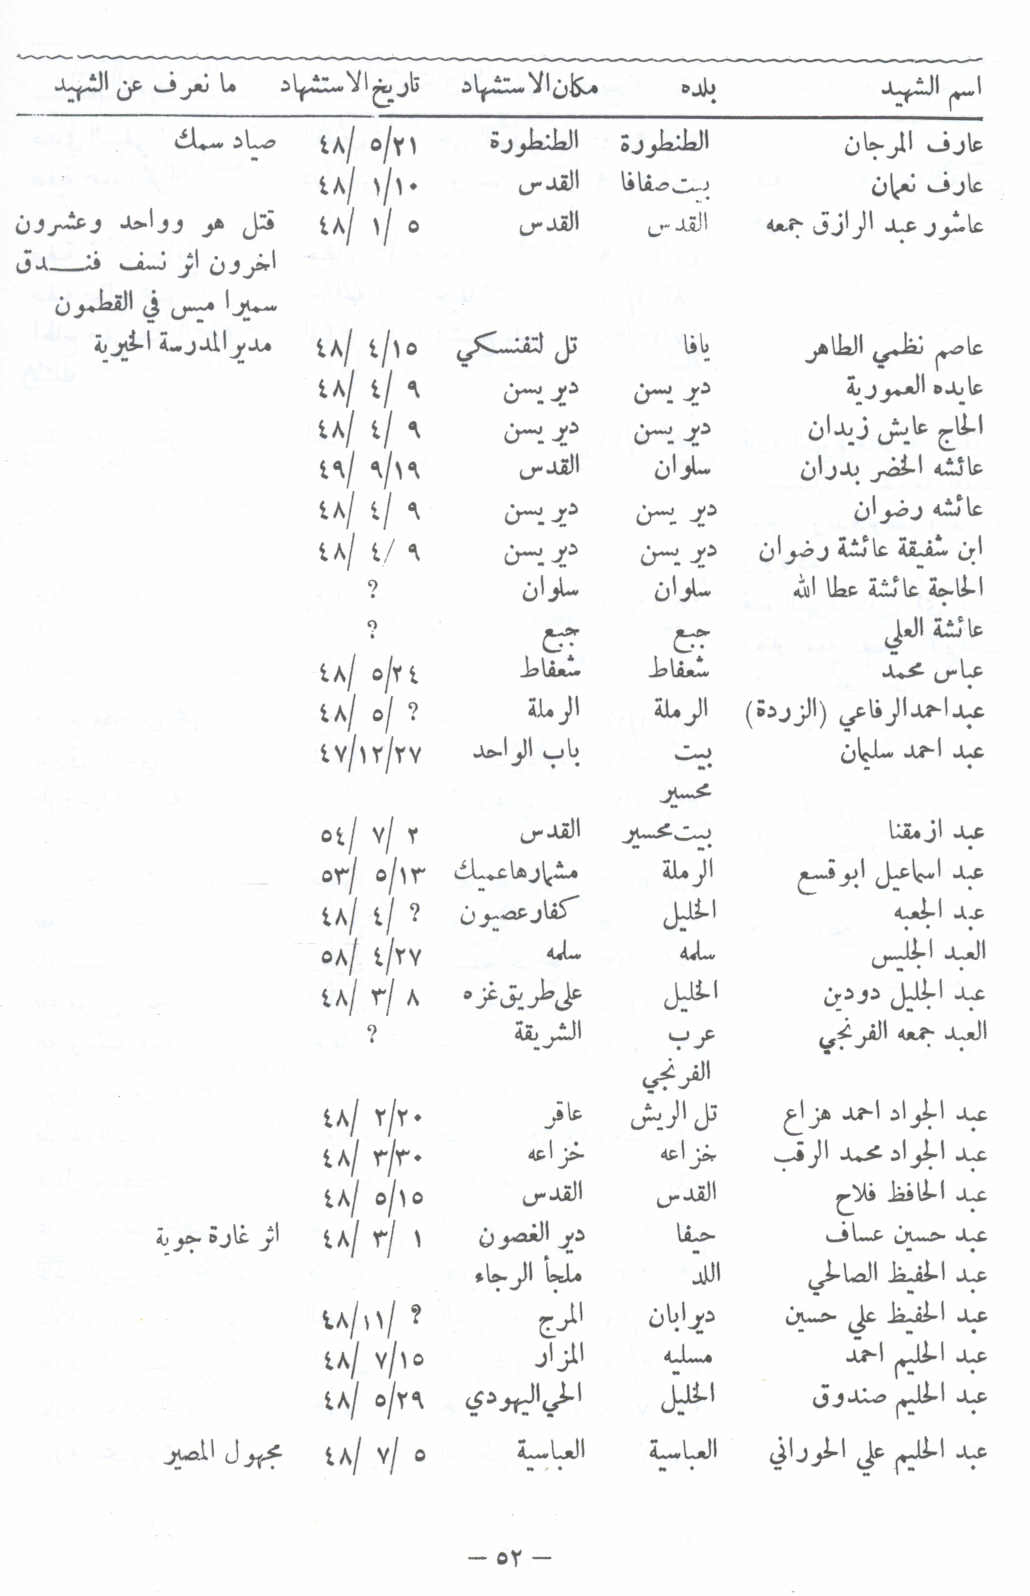 اسم الشهيد بلده مكان الاستشهاد تاريخ الاستشهاد ما نعرف عن الشهيد
عارف المرجان الطنطورة الطنطورة ٢١/ ٥ /٤٨ صياد سمك
عارف نعمان بيت صفافا القدس ١٠/ ١ /٤٨
عاشور عبد الرازق جمعه القدس القدس ٥ /١ /٤٨ قتل هو وواحد وعشرون
اخرون اثر نسف فنـــدق
سميراميس في القطمون
عاصم نظمي الطاهر يافا تل لتفنسكي ١٥/ ٤ /٤٨ مدير المدرسة الخيرية
عايده العمورية دير يسن دير يسن ٩ /٤ /٤٨
الحاج عايش زيدان دير يسن دير يسن ٩ /٤ /٤٨
عائشه الخضر بدران سلوان القدس ١٩/ ٩ /٤٩
عائشه رضوان دير يسن دير يسن ٩ /٤ /٤٨
ابن شفيقة عائشة رضوان دير يسن دير يسن ٩ /٤ /٤٨
الحاجة عائشة عطا الله سلوان سلوان ؟
عائشة العلي جبع جبع ؟
عباس محمد شعفاط شعفاط ٢٤/ ٥ /٤٨
عبد احمد الرفاعي (الزردة) الرملة الرملة ؟ /٥ /٤٨
عبد احمد سليمان بيت باب الواحد ٢٧/١٢/٤٧
محسير
عبد ازمقنا بيت محسير القدس ٢ /٧ /٥٤
عبد اسماعيل ابو قسع الرملة مشمارهاعميك ١٣/ ٥ /٥٣
عبد الجعبه الخليل كفارعصيون ؟ /٤ /٤٨
العبد الجليس سلمه سلمه ٢٧/ ٤ /٥٨
عبد الجليل دودين الخليل على طريق غزه ٨ /٣ /٤٨
العبد جمعه الفرنجي عرب الشريقة ؟
الفرنجي
عبد الجواد احمد هزاع تل الريش عاقر ٢٠/ ٢ /٤٨
عبد الجواد محمد الرقب خزاعه خزاعه ٣٠/ ٣ /٤٨
عبد الحافظ فلاح القدس القدس ١٥/ ٥ /٤٨
عبد حسين عساف حيفا دير الغصون ١ /٣ /٤٨ اثر غارة جوية
عبد الحفيظ الصالحي اللد ملجأ الرجاء
عبد الحفيظ علي حسين دير ابان المرج ؟ /١١/٤٨
عبد الحليم احمد مسليه المزار ١٥/ ٧ /٤٨
عبد الحليم صندوق الخليل الحي اليهودي ٢٩/ ٥ /٤٨
عبد الحليم علي الحوراني العباسية العباسية ٥ /٧ /٤٨ مجهول المصير
— ٥٢ —